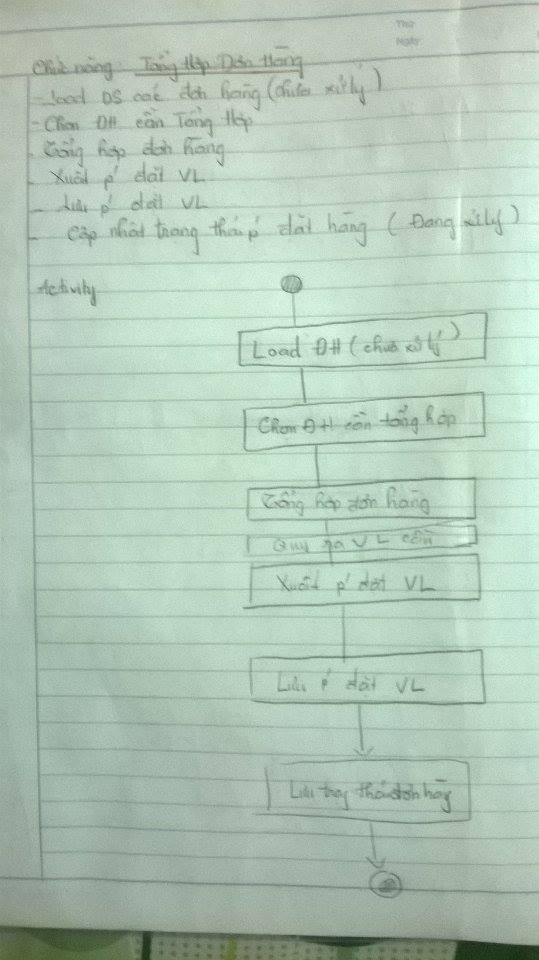 Thứ
Ngày
Chức năng: Tổng Hợp Đơn Hàng
- Load DS các đơn hàng (chưa xử lý)
- Chọn ĐH cần Tổng Hợp
- Tổng hợp đơn hàng
- Xuất p' đặt VL
- Lưu p' đặt VL
- Cập nhật trạng thái p' đặt hàng (Đang xử lý)
Activity
Load ĐH (chưa xử lý)
Chọn ĐH cần tổng hợp
Tổng hợp đơn hàng
Quy ra VL cần
Xuất p' đặt VL
Lưu p' đặt VL
Lưu trạng thái đơn hàng